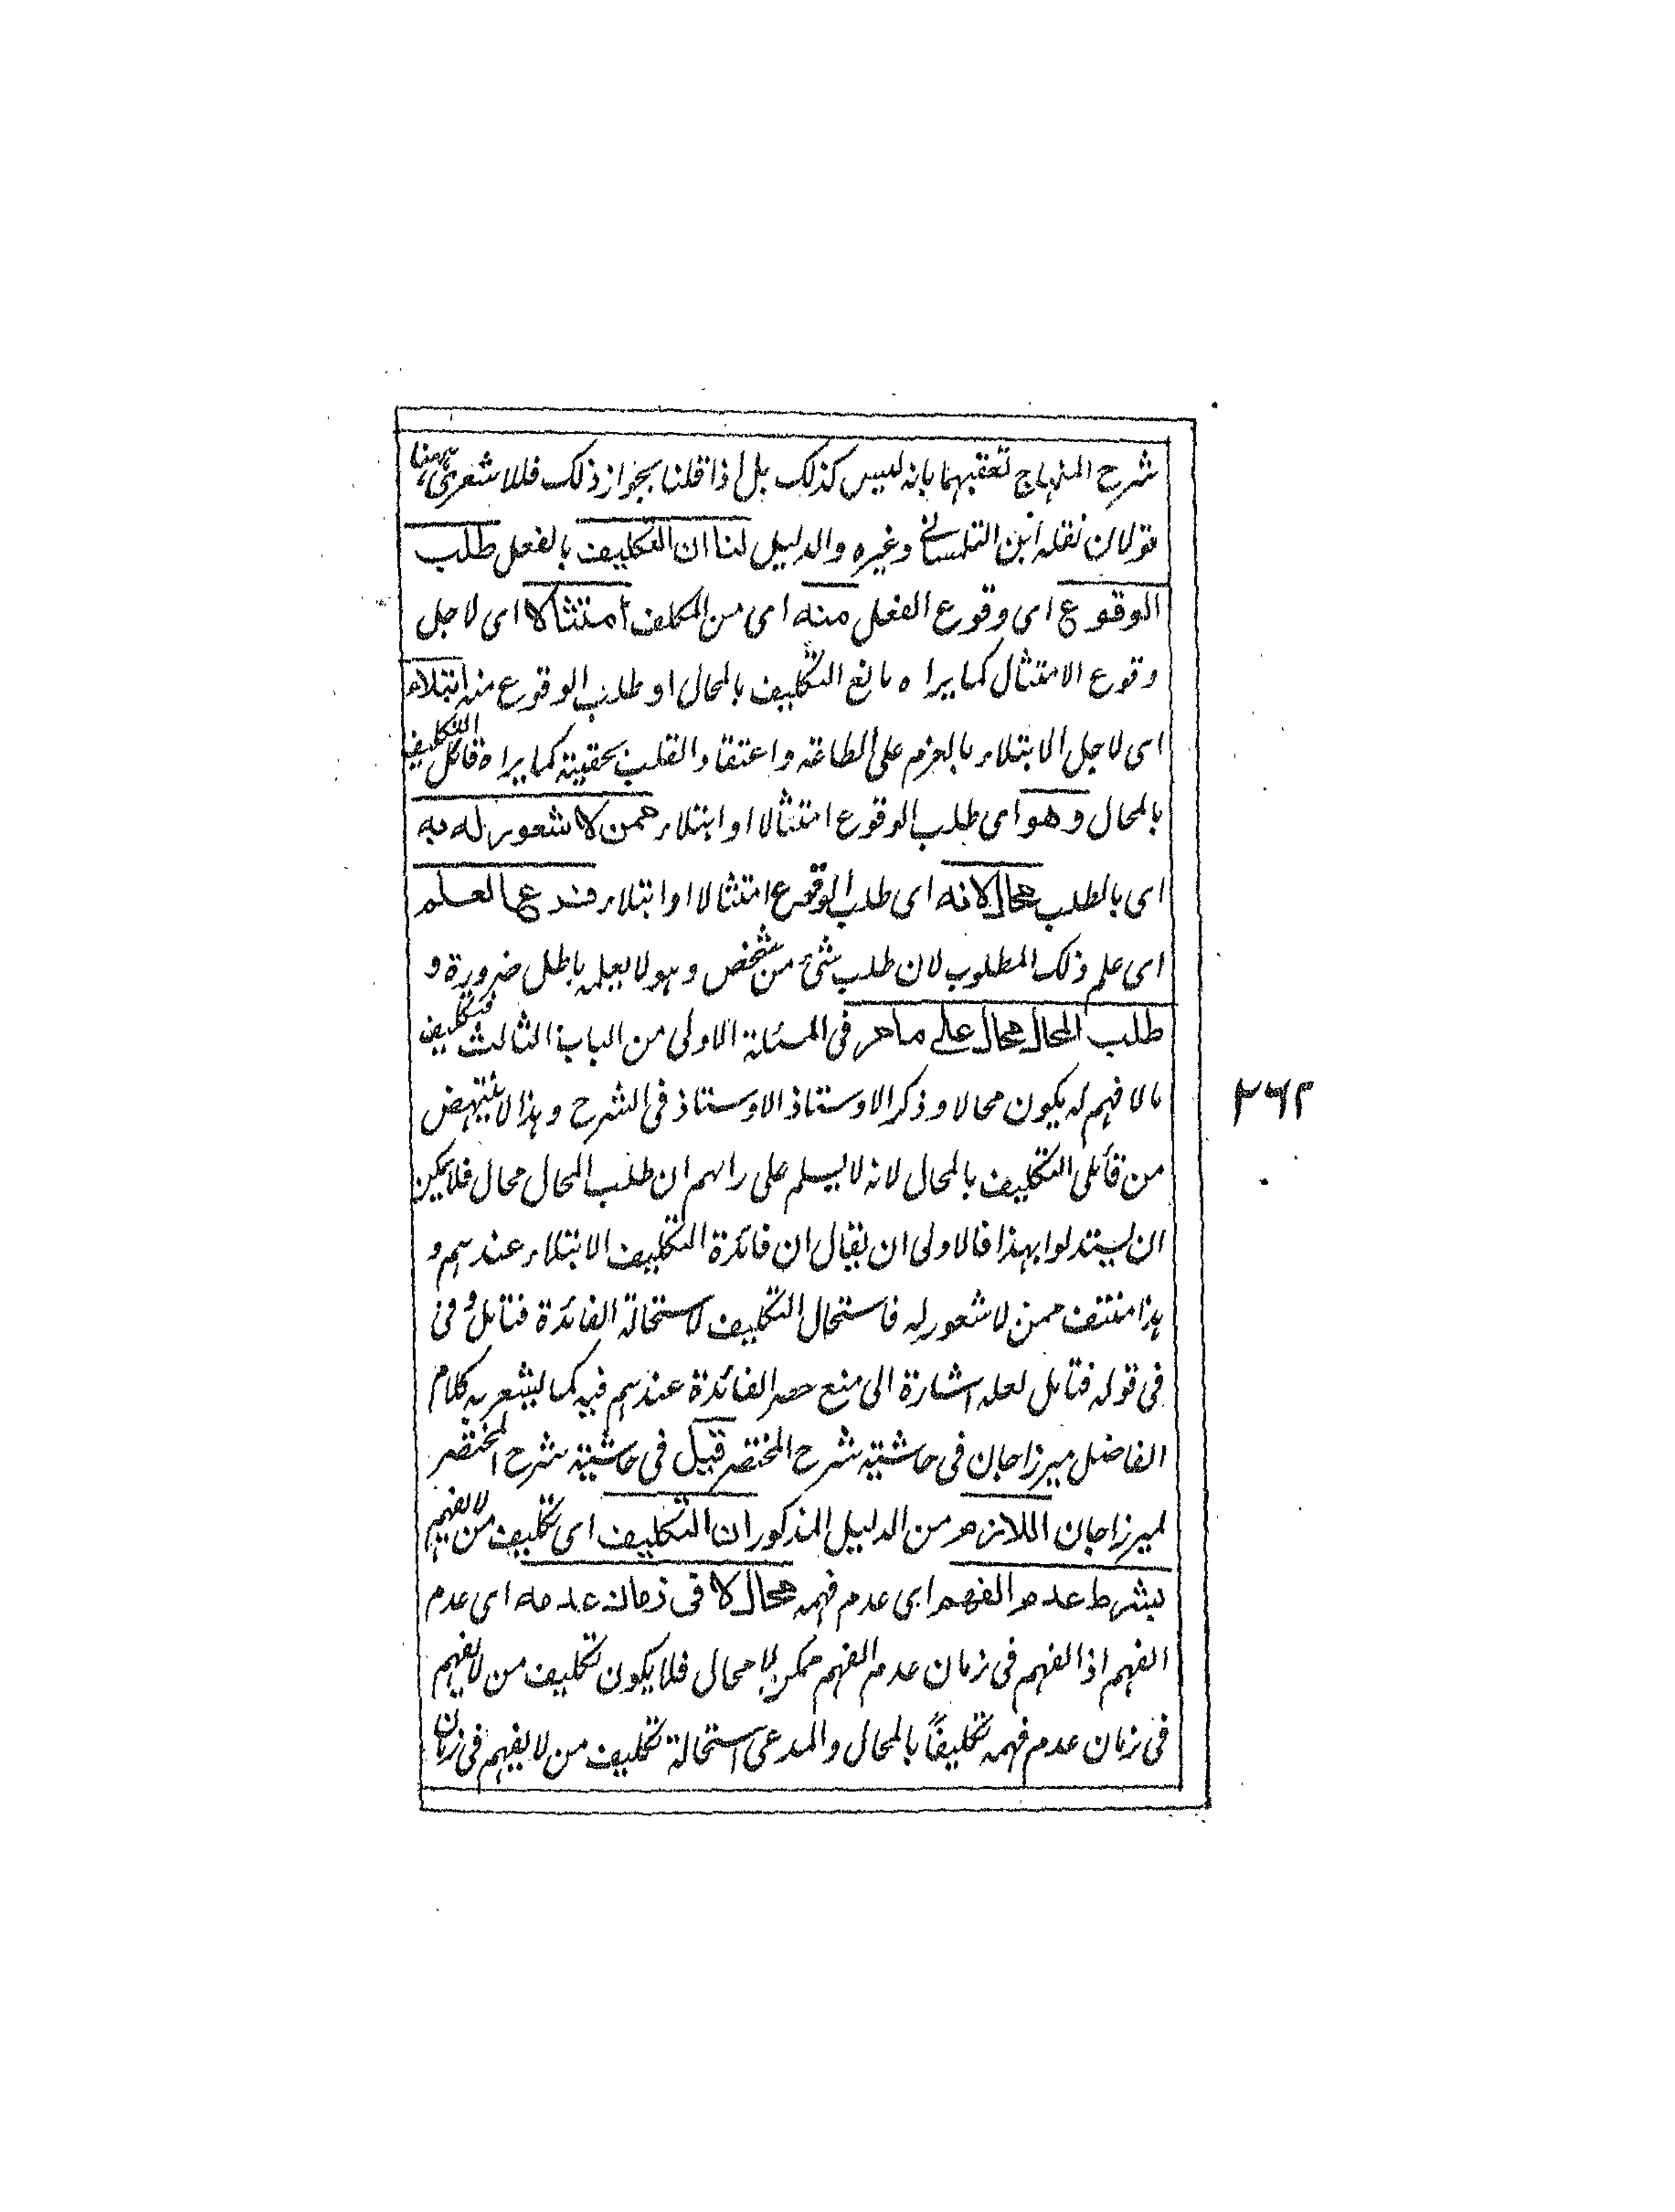 شرح المنهاج تعقبهما بانه ليس كذلك بل اذا قلنا بجواز ذلك فللاشعرىؒ ههنا
قولان نقله ابن التلمسانى وغيره والدليل لنا ان التكليف بالفعل طلب
الوقوع اى وقوع الفعل منه اى من المكلف امتثالا اى لاجل
وقوع الامتثال كما يراه مانع التكليف بالمحال او طلب الوقوع منه ابتلاء
اى لاجل الابتلاء بالعزم على الطاعة واعتقاد القلب بحقيته كما يراه قائل التكليف
بالمحال وهو اى طلب الوقوع امتثالا او ابتلاء ممن لا شعور له به
اى بالطلب محال لانه اى طلب الوقوع امتثالا او ابتلاء فرع العلم
اى علم ذلك المطلوب لان طلب شئ من شخص وهو لا يعلمه باطل ضرورة و
طلب المحال محال على ما مر فى المسئلة الاولى من الباب الثالث فتكليف
ما لا فهم له يكون محالا وذكر الاوستاذ الاوستاذ فى الشرح وهذا لا ينتهض
من قائلى التكليف بالمحال لانه لا يسلم على رايهم ان طلب المحال محال فلا يمكن
ان يستدلوا بهذا فالاولى ان يقال ان فائدة التكليف الابتلاء عندهم و
هذا منتف ممن لا شعور له فاستحال التكليف لاستحالة الفائدة فتامل و فى
فى قوله فتامل لعله اشارة الى منع حصر الفائدة عندهم فيه كما يشعر به كلام
الفاضل ميرزاجان فى حاشيته شرح المختصر قيل فى حاشية شرح المختصر
لميرزاجان اللازم من الدليل المذكور ان التكليف اى تكليف من لا يفهم
بشرط عدم الفهم اى عدم فهمه محال لا فى زمان عدمه اى عدم
الفهم اذ الفهم فى زمان عدم الفهم ممكن لا محال فلا يكون تكليف من لا يفهم
فى زمان عدم فهمه تكليفًا بالمحال والمدعى استحالة تكليف من لا يفهم فى زمان
٢٦٢